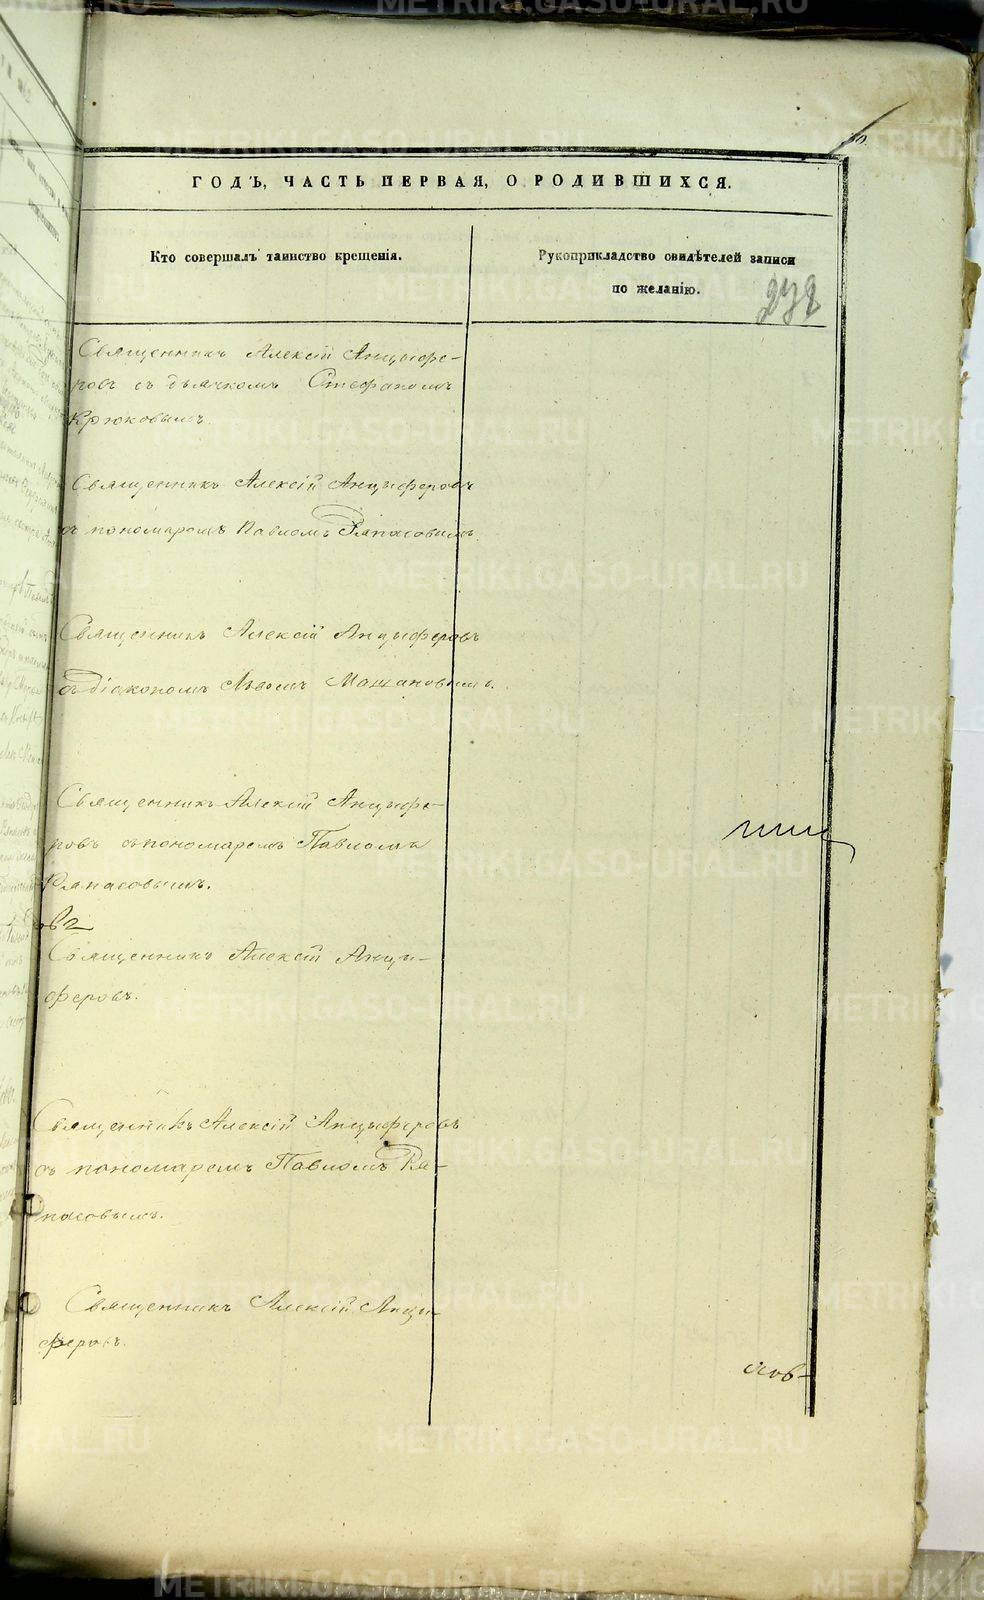 ГОДЪ, ЧАСТЬ ПЕРВАЯ, О РОДИВШИХСЯ.
Кто совершалъ таинство крещенія.
Рукоприкладство свидѣтелей записи
по желанію.
Священникъ Алексій Анцыфе-
ровъ съ дьячкомъ Стефаномъ
Крюковымъ.
Священникъ Алексій Анцыферовъ
съ пономаремъ Павломъ Ряпасовымъ.
Священникъ Алексій Анцыферовъ
съ діакономъ Львомъ Машановымъ.
Священникъ Алексій Анцыфе-
ровъ съ пономаремъ Павломъ
Ряпасовымъ.
Священникъ Алексій Анцы-
феровъ.
Священникъ Алексій Анцыферовъ
съ пономаремъ Павломъ Ря-
пасовымъ.
Священникъ Алексій Анцы-
феровъ.
METRIKI.GASO-URAL.RU